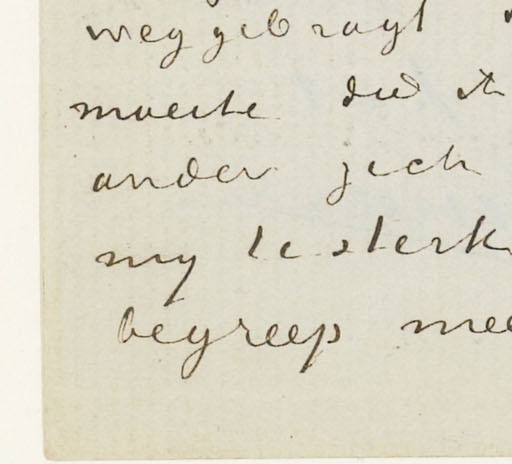 weggebragt
moeite die ik
ander zich
my te sterk
begreep mee